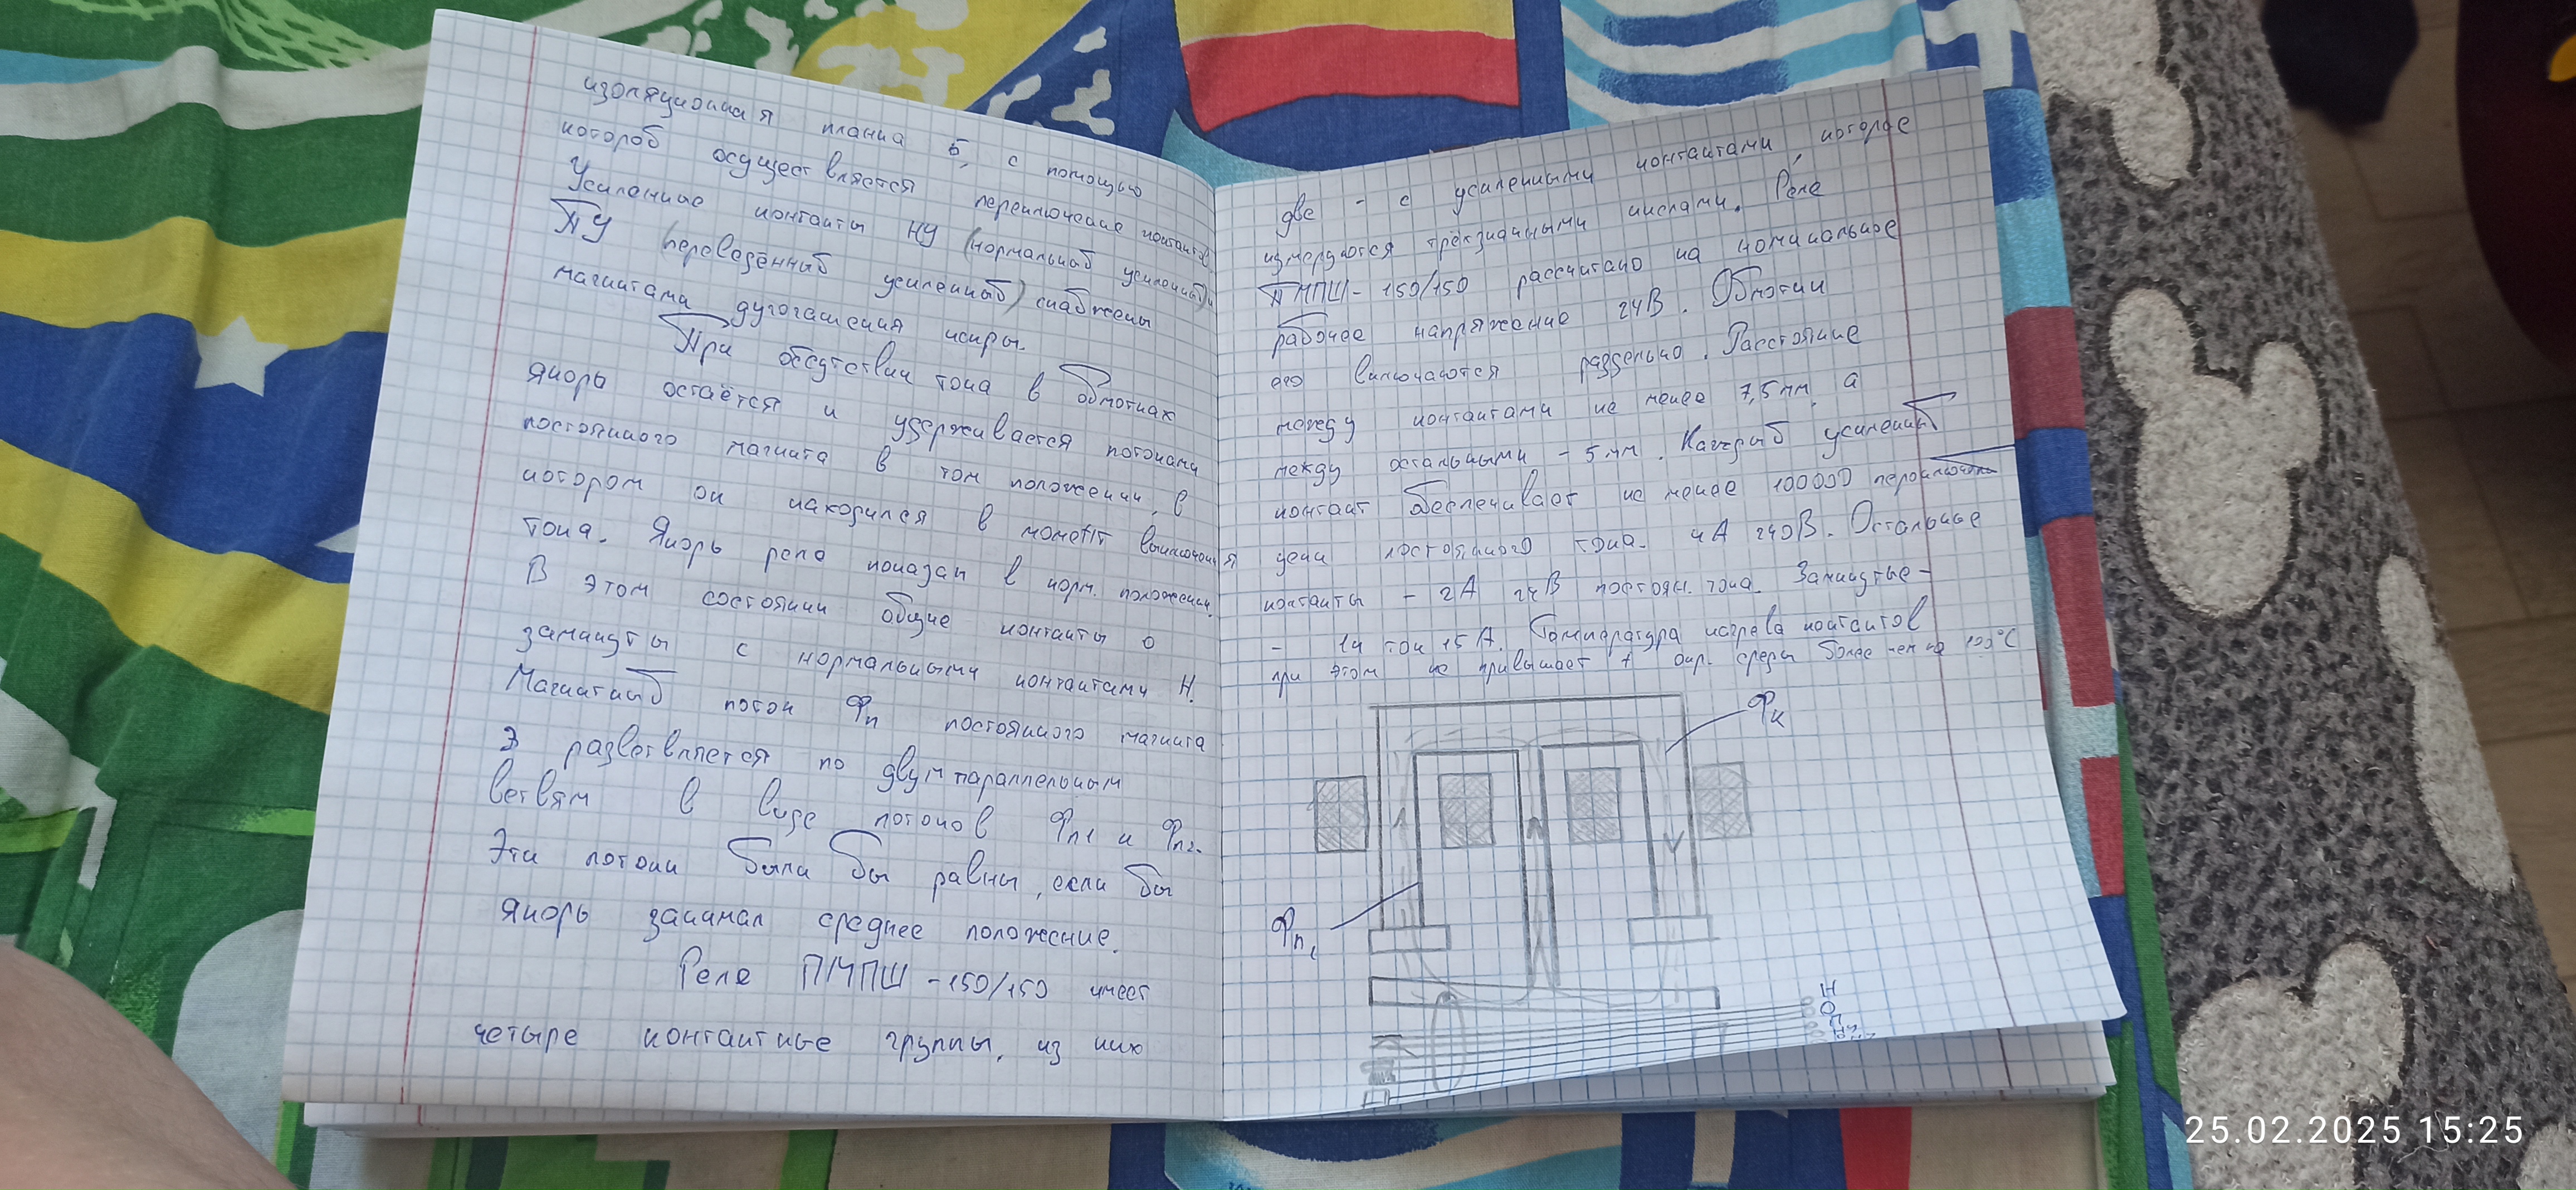 изоляционная планка 5, с помощью
которой осуществляется переключение контактов.
Усиленные контакты НУ (нормальный усиленный) и
ПУ (переведённый усиленный) снабжены
магнитами дугогашения искры.
При отсутствии тока в обмотках
якорь остаётся и удерживается потоками
постоянного магнита в том положении, в
котором он находился в момент выключения
тока. Якорь реле показан в норм. положении.
В этом состоянии общие контакты О
замкнуты с нормальными контактами Н.
Магнитный поток Фп постоянного магнита
3 разветвляется по двум параллельным
ветвям в виде потоков Фп1 и Фп2.
Эти потоки были бы равны, если бы
якорь занимал среднее положение.
Реле ПМПШ-150/150 имеет
четыре контактные группы, из них
две - с усиленными контактами, которые
трёхзначными числами. Реле
ПМПШ-150/150 рассчитано на номинальное
рабочее напряжение 24В. Обмотки
его включаются раздельно. Расстояние
между контактами не менее 7,5мм, а
между остальными - 5мм. Каждый усиленный
контакт не менее 100000
цепи постоянного тока 4А 240В. Остальные
контакты - 2А 24В постоян. тока.
- 1ч ток 15А. Температура нагрева контактов
при этом не t окр. среды более чем на 100°С
Фк
Фп1
Н
О
П